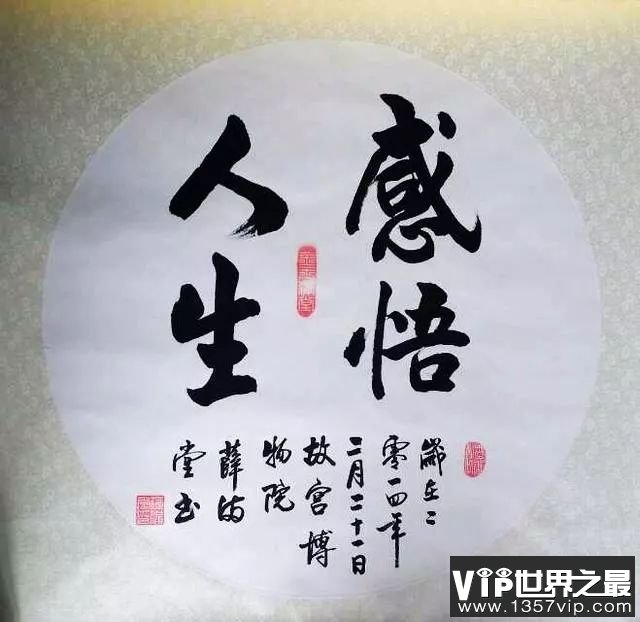 感悟
人生
歲在二
零一四年
二月二十一日
故宫博
物院
薛
堂书
VIP世界之最
www.1357vip.com